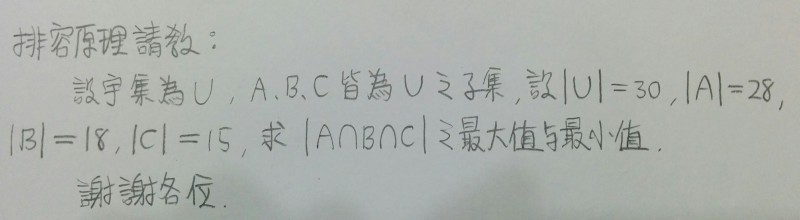 排容原理請教:
設宇集為U, A、B、C皆為U之子集, 設|U|=30, |A|=28,
|B|=18, |C|=15, 求|A∩B∩C|之最大值与最小值.
謝謝各位.